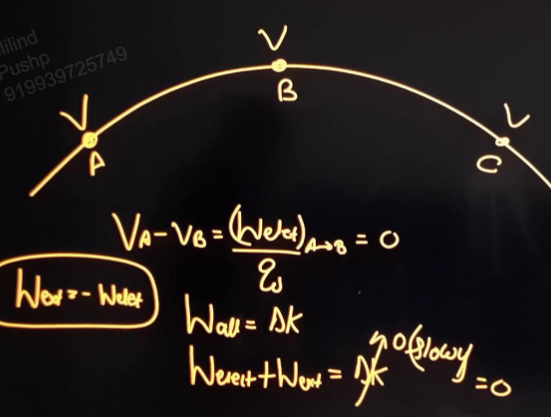 Milind
Pushp
919939725749
V
B
V
A
V
C
VA - VB = (Welect)A→B / q0 = 0
Wext = - Welect
Wall = ΔK
Welect + Wext = ΔK → 0 (slowly) = 0